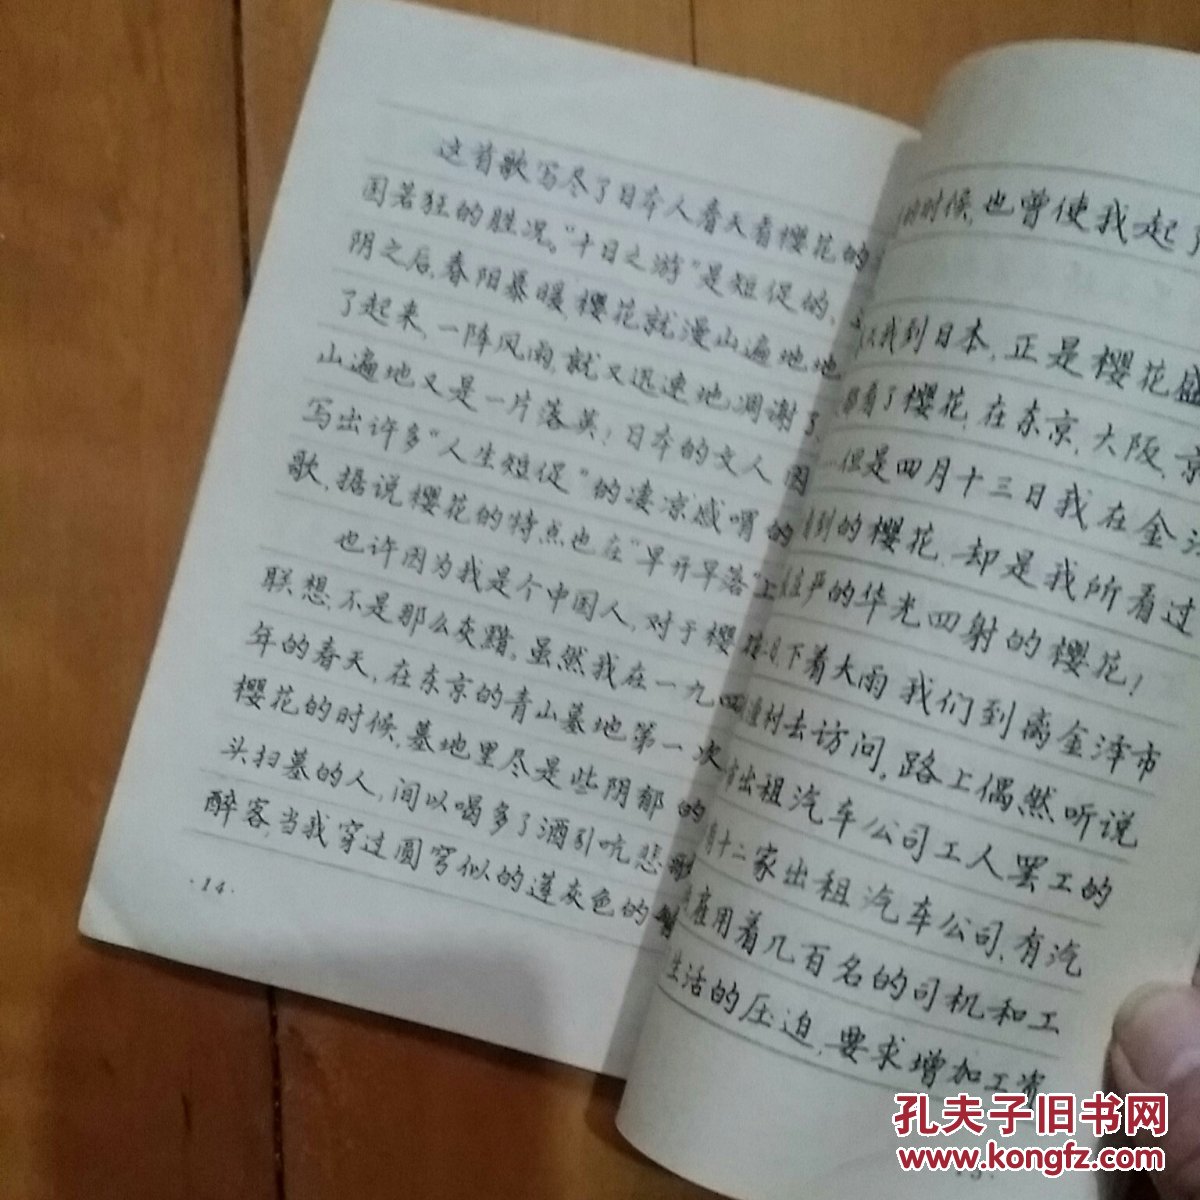 这首歌写尽了日本人春天看樱花的
国若狂的胜况。“十日之游”是短促的,
阴之后,春阳暴暖,樱花就漫山遍地地
了起来,一阵风雨,就又迅速地凋谢了,
山遍地又是一片落英!日本的文人因
写出许多“人生短促”的凄凉感喟的
歌,据说樱花的特点也在“早开早落”上
也许因为我是个中国人,对于樱
联想,不是那么灰黯。虽然我在一九四
年的春天,在东京的青山墓地第一次
樱花的时候,墓地里尽是些阴郁的
头扫墓的人,间以喝多了酒引吭悲歌
醉客,当我穿过圆穹似的莲灰色的
·14·
的时候,也曾使我起了
我到日本,正是樱花盛
都看了樱花,在东京,大阪,京
…但是四月十三日我在金泽
看到的樱花,却是我所看过
庄严的华光四射的樱花!
下着大雨,我们到离金泽市
村去访问,路上偶然听说
出租汽车公司工人罢工的
十二家出租汽车公司,有汽
雇用着几百名的司机和工
生活的压迫,要求增加工资
孔夫子旧书网
www.kongfz.com